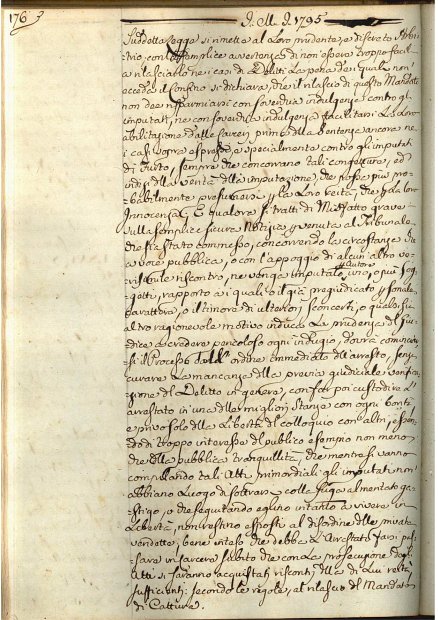 176
A. M. D. 1795
Suddetta Legge si rimette al Loro prudente, e discreto Arbi-
trio con semplice avvertenza di non essere troppo facil
a rilasciarlo ne i casi di Delitti La pena de i quali non
ecceda il Confino si dichiara, che il rilascio di questo Mandato
non dee risparmiarsi con soverchia indulgenza contro gl'
imputati, ne con soverchia indulgenza facilitarsi La Loro
abilitazione dalle Carceri prima della Sentenza ancora ne
i casi sopra espressi, e specialmente contro gli imputati
di Furto, sempre che concorrano tali congetture, ed
indizi della verità della imputazione, che possa più pro-
babilmente presumersi per la Loro reità, che per la loro
Innocenza. E qualora si tratti di Misfatto grave
sulla semplice sicura Notizia pervenuta al Tribunale
che sia stato commesso, concorrendo la circostanza della
voce pubblica, o con l'appoggio di alcun altro ve-
risimile riscontro, ne venga imputato Autore uno, o più Sog-
getti, rapporto a i quali o il già pregiudicato personale
carattere, o il timore di ulteriori sconcerti, o qualsisia
altro ragionevole motivo induca La prudenza del Giu-
dice a credere pericoloso ogni indugio, dovrà cominciar-
si il Processo dall' ordine immediato dell' arresto, senza
curare La mancanza della previa giudiciale verifica-
zione del Delitto in genere, con far poi custodire L'
arrestato in una delle migliori Stanze con ogni bontà
e privo solo della Libertà del colloquio con altri, essen-
do di troppo interesse del pubblico esempio non meno
che della pubblica tranquillità, che mentre si vanno
compilando tali Atti primordiali gl'imputati non
abbiano Luogo di sottrarsi colla fuga al meritato ga-
stigo, o che seguitando eglino intanto a vivere in
Libertà, non restino esposti al disordine delle private
vendette, bene inteso che debba L'Arrestato farsi pas-
sare in Carcere subito che con La prosecuzione degli
Atti si saranno acquistati riscontri della di Lui reità
sufficienti, secondo le regole, al rilascio del Mandato
di Cattura.